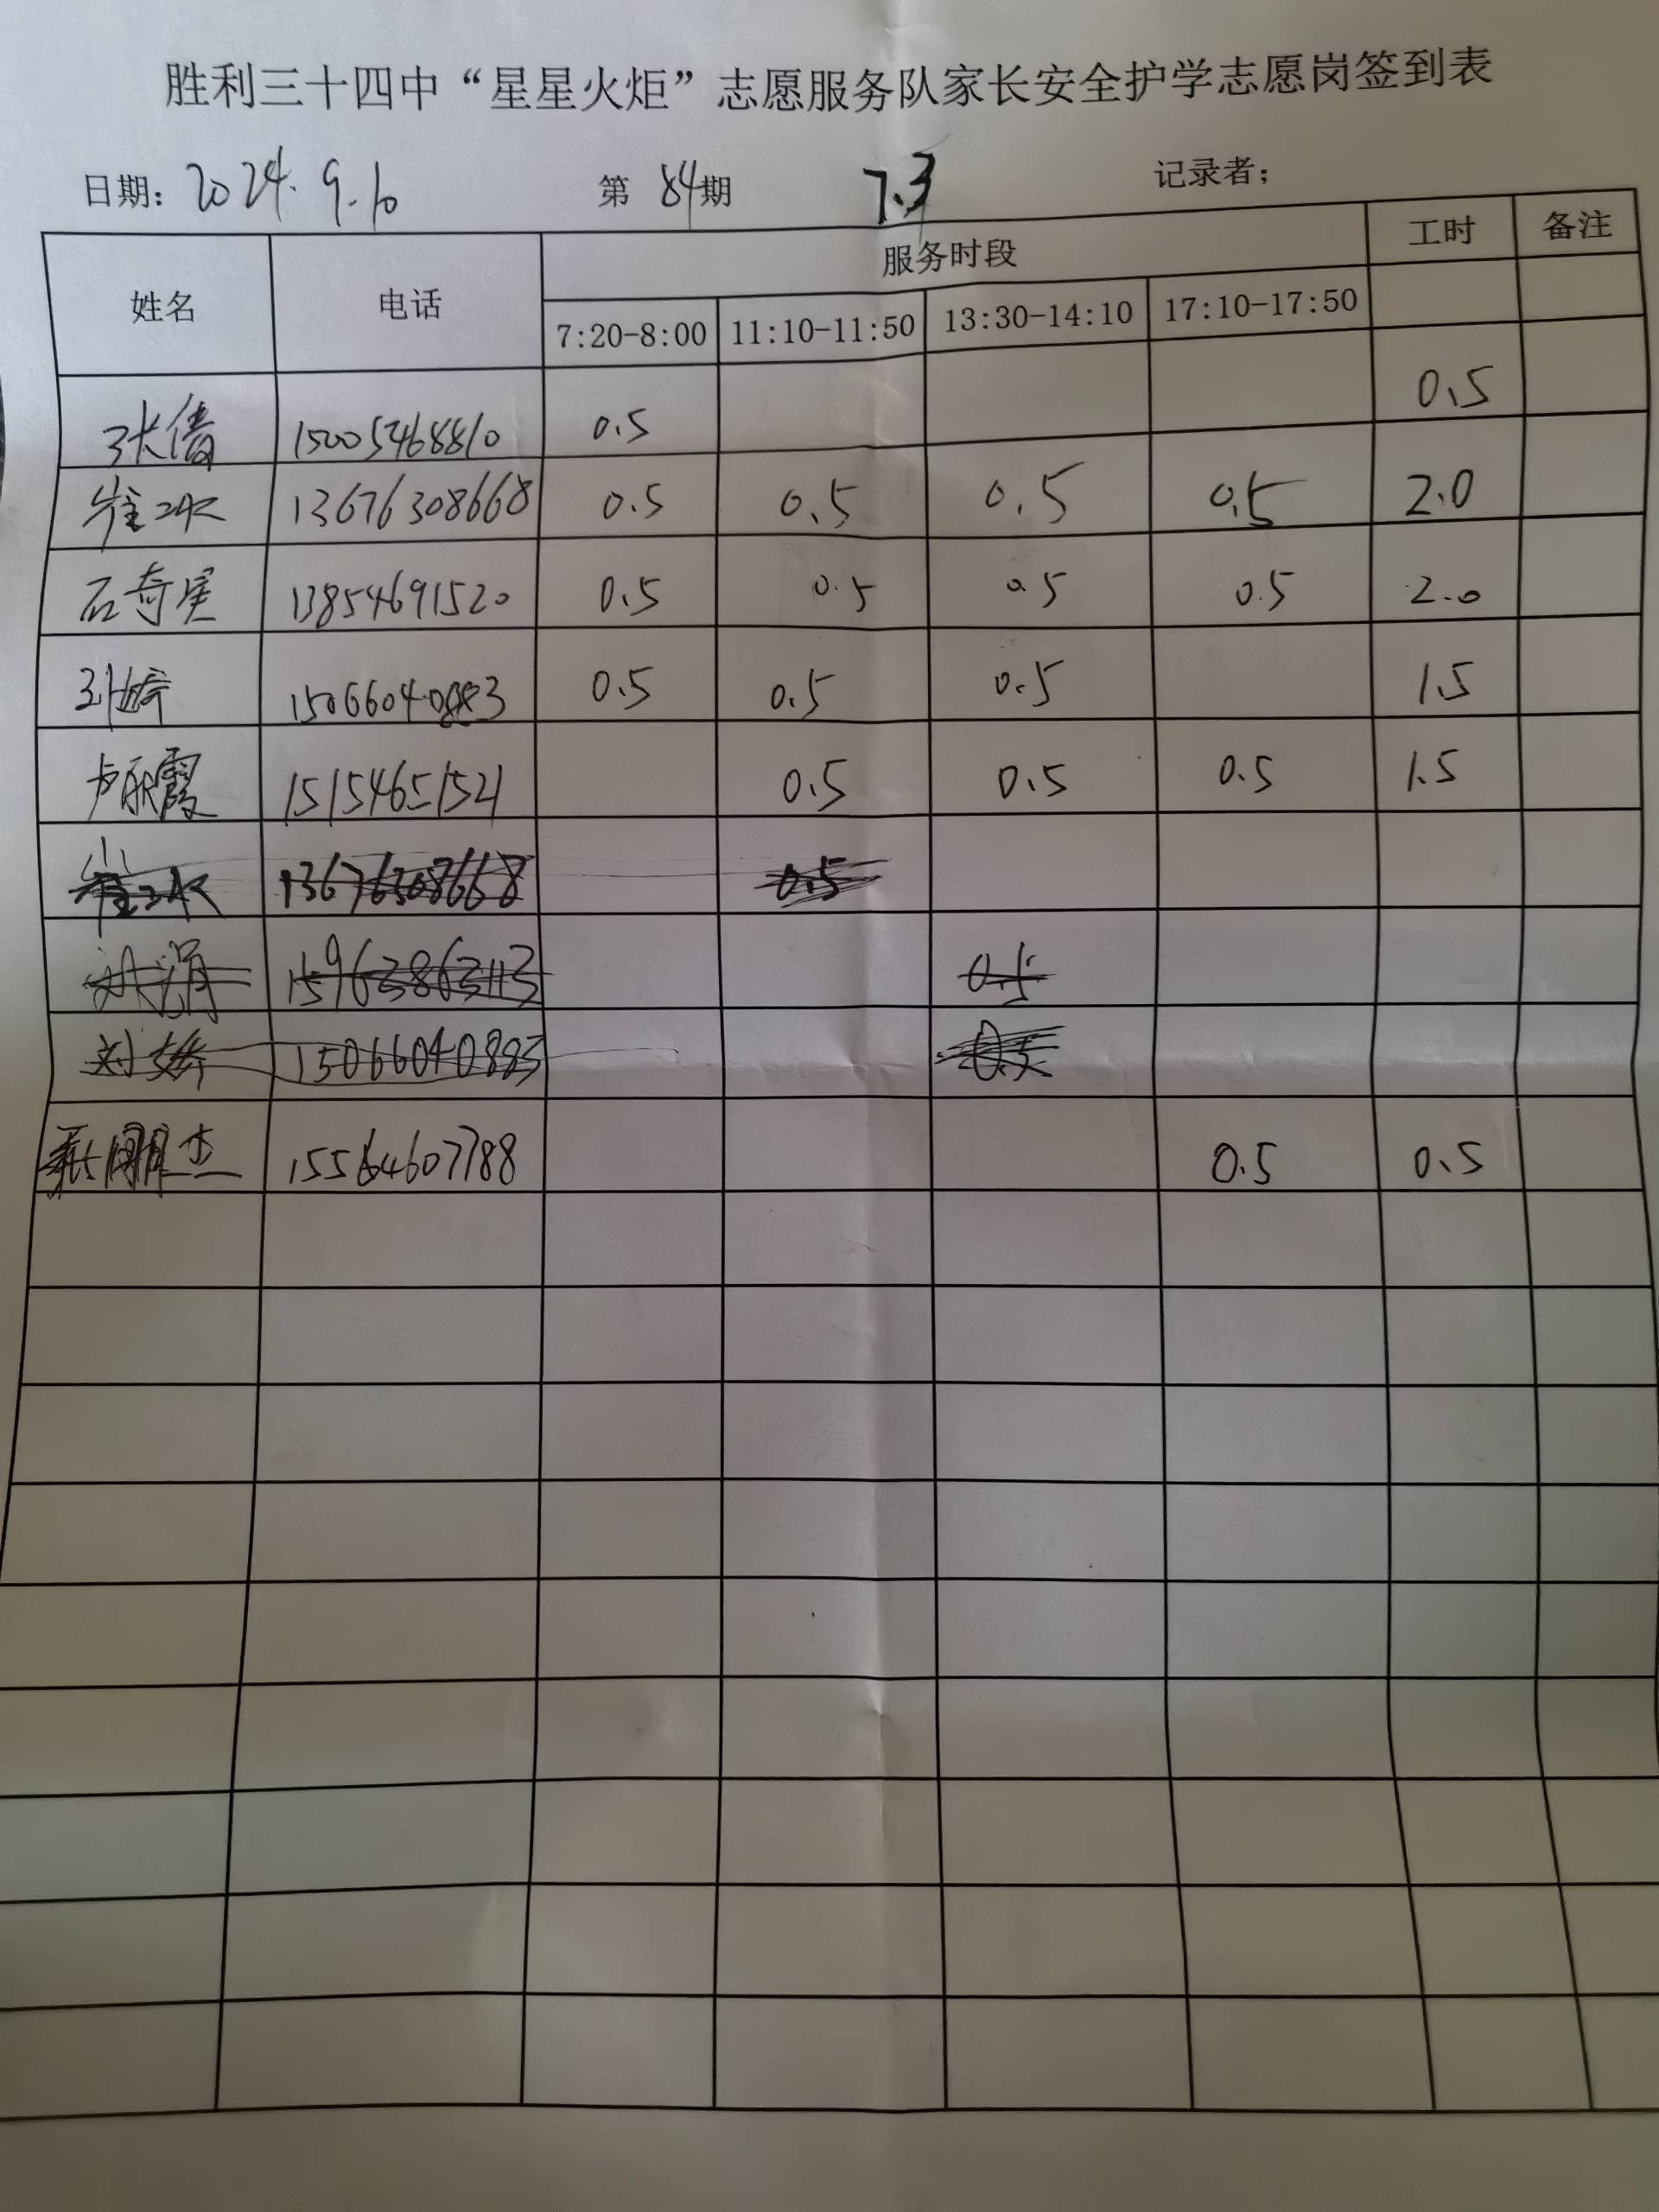 胜利三十四中“星星火炬”志愿服务队家长安全护学志愿岗签到表
日期: 2024.9.10 第 84期 7.3 记录者;
姓名 电话 服务时段 工时 备注
7:20-8:00 11:10-11:50 13:30-14:10 17:10-17:50
张倩 15005468810 0.5 0.5
崔冰 13676308668 0.5 0.5 0.5 0.5 2.0
石奇 13854691520 0.5 0.5 0.5 0.5 2.0
刘娇 15066040883 0.5 0.5 0.5 1.5
卢 霞 15154651521 0.5 0.5 0.5 1.5
崔冰 13676308668 0.5
15963863113 0.5
刘娇 15066040883 0.5
朋杰 15564607788 0.5 0.5